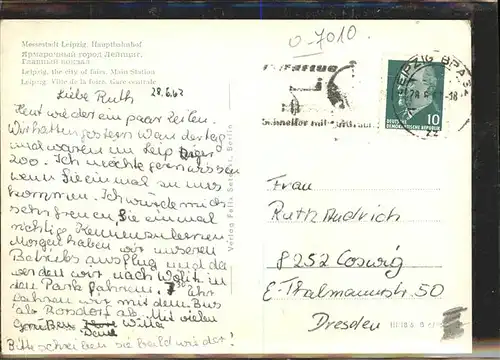 Messestadt Leipzig. Hauptbahnhof
Ярмарочный город Лейпциг.
Главный вокзал
Leipzig, the city of fairs, Main Station
Leipzig. Ville de la foire. Gare centrale
0-7010
28.6.63
Liebe Ruth
Heut wieder ein paar Zeilen.
Wir hatten gestern Wandertag
und waren im Leipziger
Zoo. Ich möchte gern wissen
wenn Sie einmal zu uns
kommen. Ich würde mich
sehr freuen Sie einmal
richtig Kennenzulernen
Morgen haben wir unseren
Betriebs ausflug und da
werden wir nach Wörlitz in
den Park fahren. 7 Uhr
fahren wir mit dem Bus
ab. Mit vielen
Grüßen
Bitte schreiben sie bald wieder!
Verlag Felix Setecki, Berlin
LEIPZIG BPA
Schneller mit
10
DEUTSCHE
DEMOKRATISCHE REPUBLIK
Frau
Ruth
8252 Coswig
E. Thälmannstr. 50
Dresden